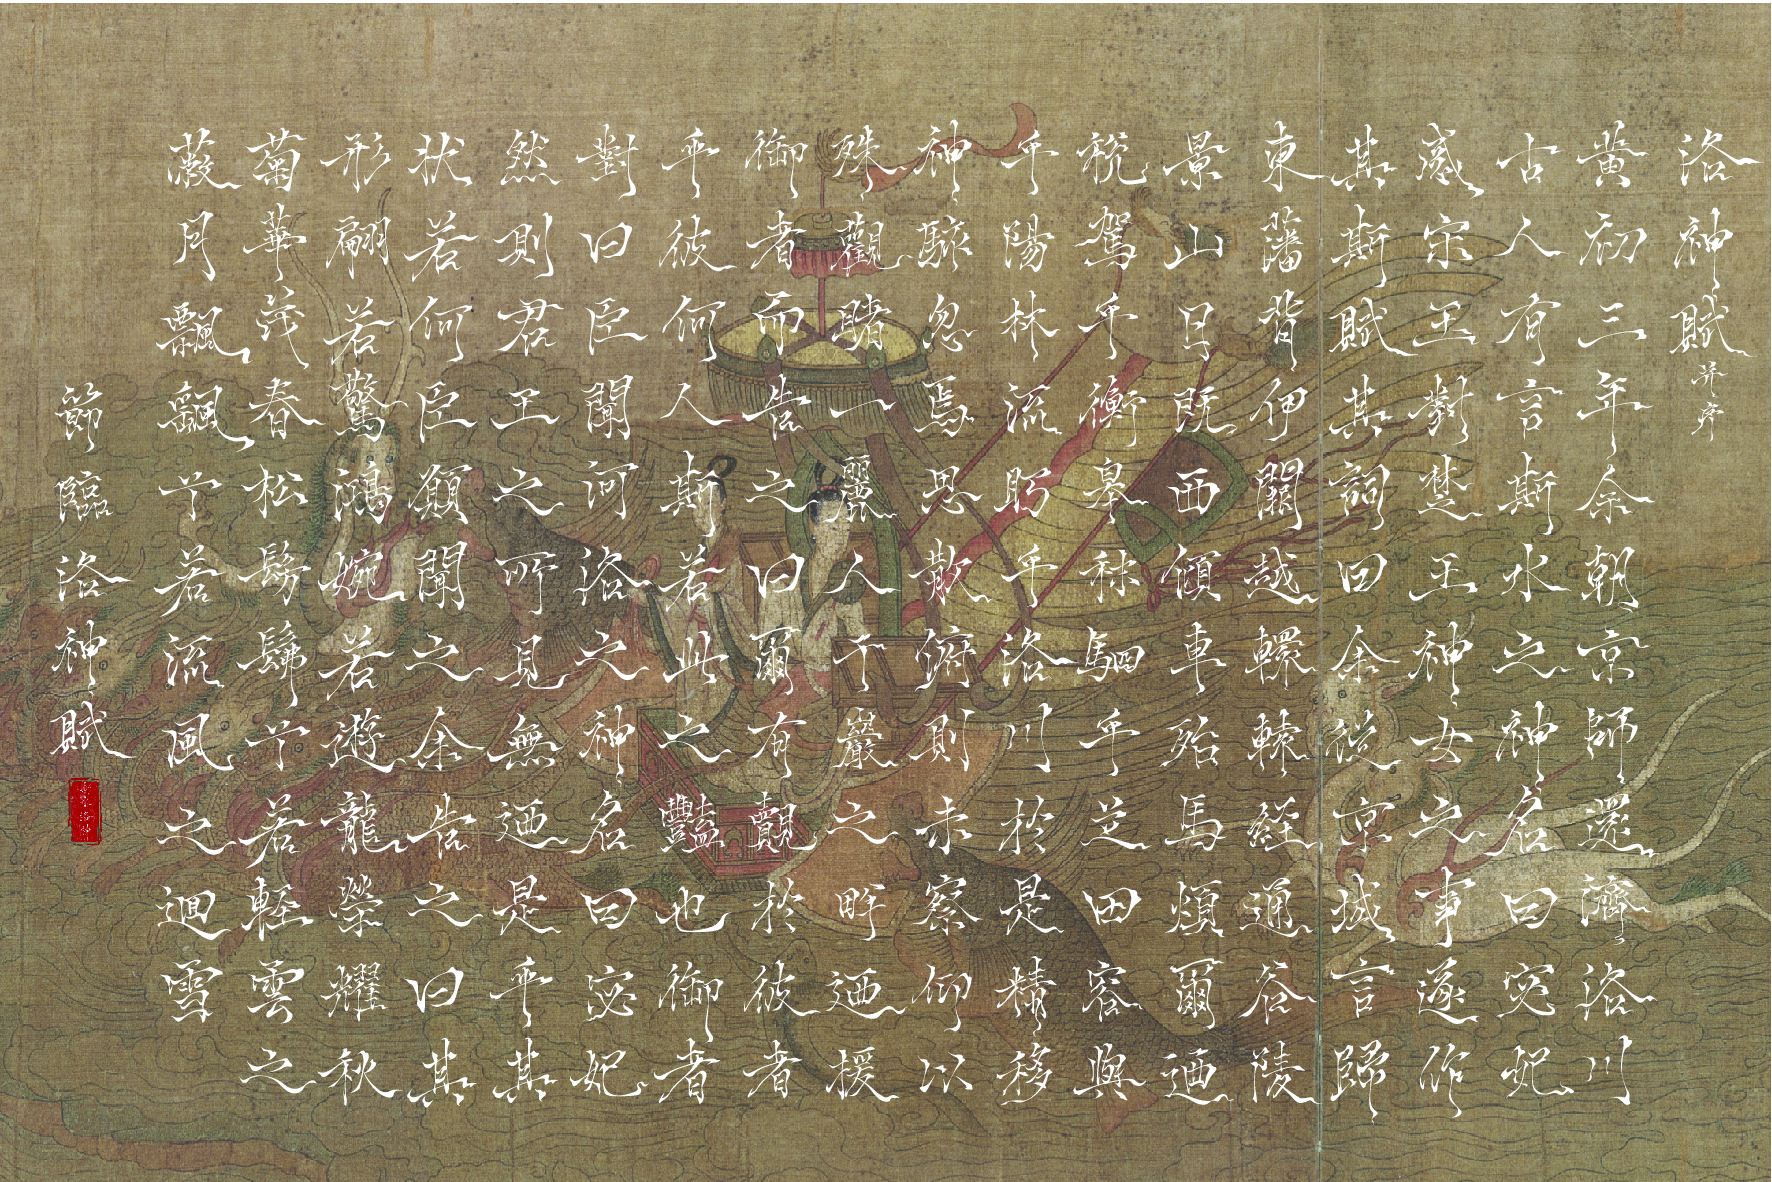 洛神賦并序
黃初三年余朝京師還濟洛川
古人有言斯水之神名曰宓妃
感宋玉對楚王神女之事遂作
其斯賦其詞曰余從京域言歸
東藩背伊闕越轘轅經通谷陵
景山日既西傾車殆馬煩爾迺
稅駕乎衡皋秣駟乎芝田容與
乎陽林流眄乎洛川於是精移
神駭忽焉思散俯則未察仰以
殊觀睹一麗人于巖之畔迺援
御者而告之曰爾有覿於彼者
乎彼何人斯若此之豔也御者
對曰臣聞河洛之神名曰宓妃
然則君王之所見無迺是乎其
狀若何臣願聞之余告之曰其
形翩若驚鴻婉若遊龍榮耀秋
菊華茂春松髣髴兮若輕雲之
蔽月飄飖兮若流風之迴雪
節臨洛神賦